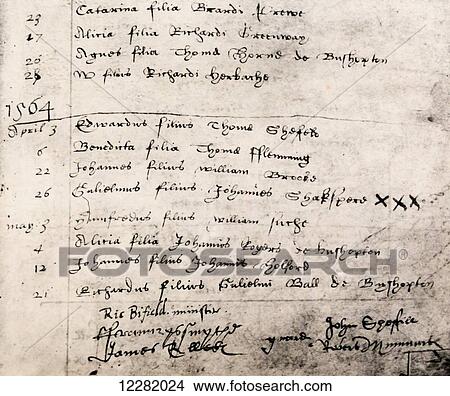 23 Catarina filia Ricardi
17 Alicia filia Richardi Greenway
20 Agnes filia Thomæ Horne de Bushopton
28 W filius Richardi Herbache
1564
April 3 Edwardus filius Thomæ Sheffeld
6 Benedicta filia Thomæ fflemming
22 Johannes filius William Brooke
26 Gulielmus filius Johannes Shakspere XXX
may 3 filius William
4 Alicia filia Johannis Rogers de Bushopton
FOTOSEARCH
12 Johannes filius Johannis Holford
21 Richardus filius Gulielmi Ball de Bushopton
Ric Bifield minister
John
James
12282024 www.fotosearch.com